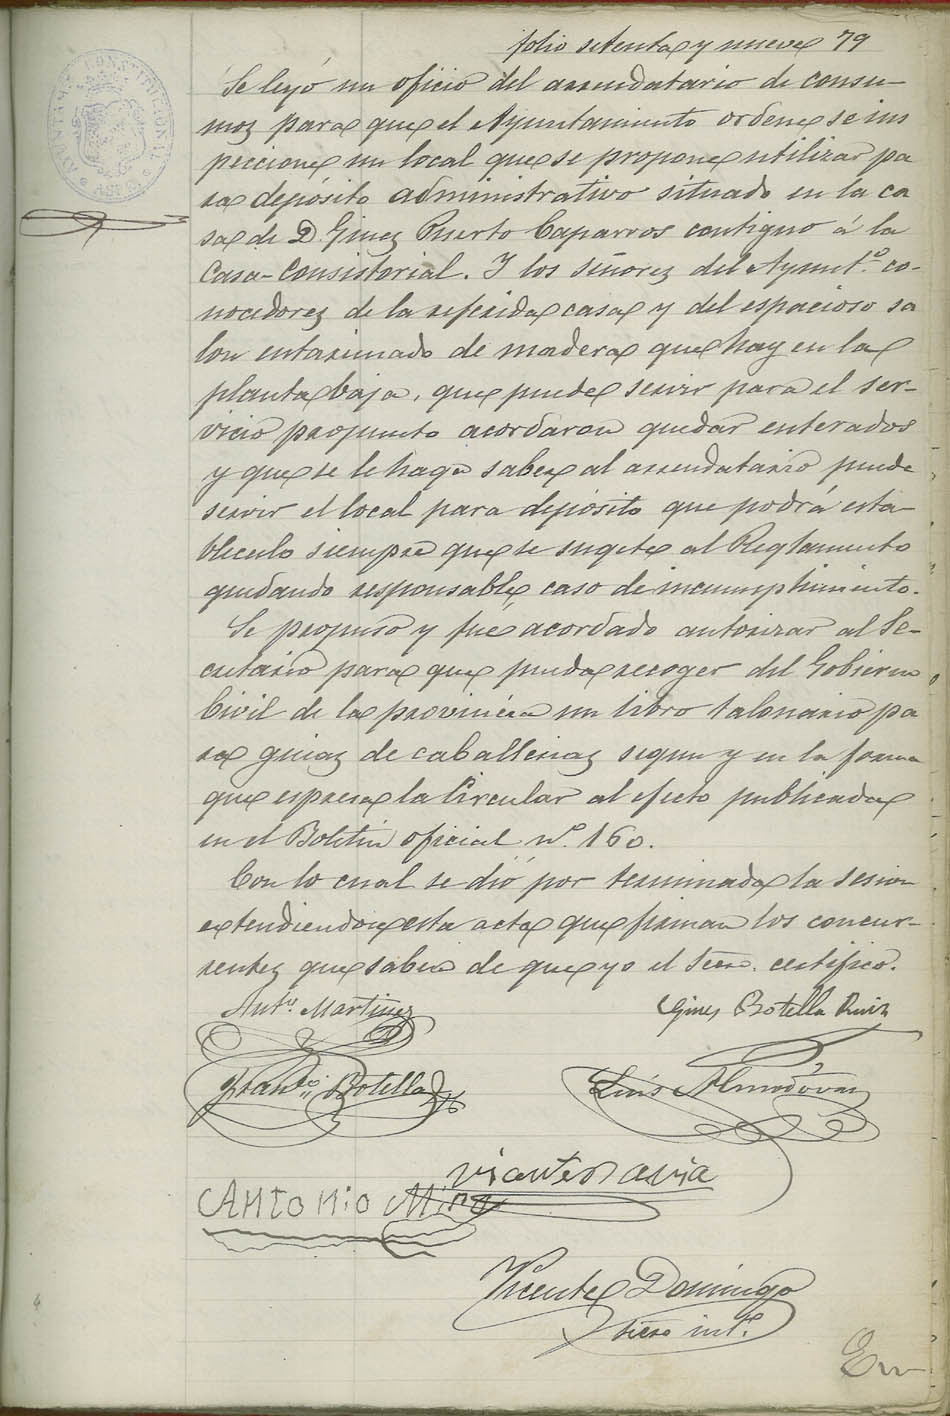 folio setenta y nueve 79
AYUNTAMIENTO CONSTITUCIONAL
ASPE
Se leyó un oficio del arrendatario de consu-
mos para que el Ayuntamiento ordene se ins
peccione un local que se propone utilizar pa
ra depósito administrativo situado en la ca
sa de D. Gines Puerto Caparros contiguo á la
Casa-Consistorial. Y los señores del Ayunt.º co-
nocedores de la referida casa y del espacioso sa
lon entarimado de madera que hay en la
planta baja, que puede servir para el ser-
vicio propuesto acordaron quedar enterados
y que se le haga saber al arrendatario puede
servir el local para deposito que podrá esta-
blecerlo siempre que se sugete al Reglamento
quedando responsable, caso de incumplimiento.
Se propuso y fue acordado autorizar al Se-
cretario para que pueda recoger del Gobierno
Civil de la provincia un libro talonario pa
ra guias de caballerias segun y en la forma
que espresa la Circular al efecto publicada
en el Boletin oficial nº. 160.
Con lo cual se dió por terminada la sesion
extendiendose esta acta que firman los concur-
rentes que saben de que yo el Srio. certifico.
Antº. Martinez
Gines Botella Ruiz
Franco. Botella
Luis Almodóvar
Vicente Pavia
ANTONIO Mira
Vicente Domingo
Srio intº.
En